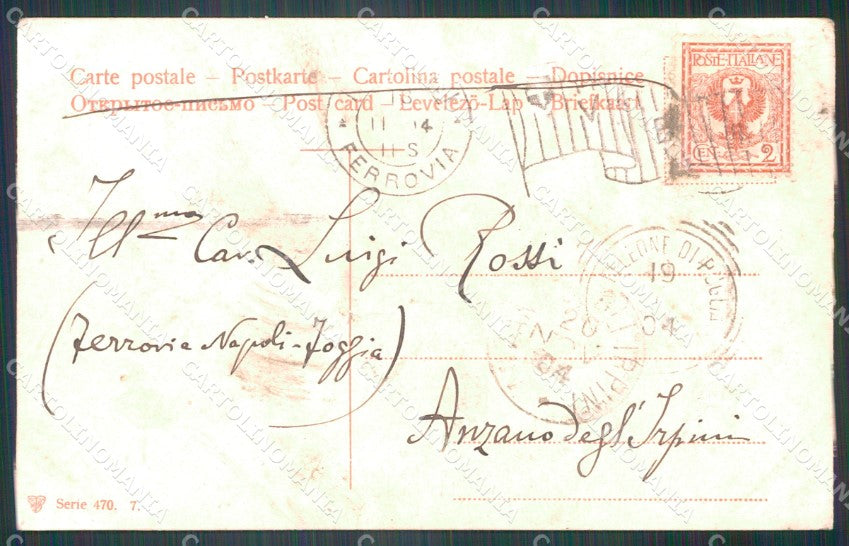 Carte postale – Postkarte – Cartolina postale – Dopisnice
Открытое письмо – Post card – Levelező-Lap – Briefkaart
POSTE·ITALIANE
CENT. 2
11 04
11 S
FERROVIA
Illmo Cav. Luigi Rossi
(Ferrovia Napoli-Foggia)
LEONE DI PUGLIA
19
04
20
04
Anzano degl'Irpini
Serie 470. 7.
CARTOLINOMANIA